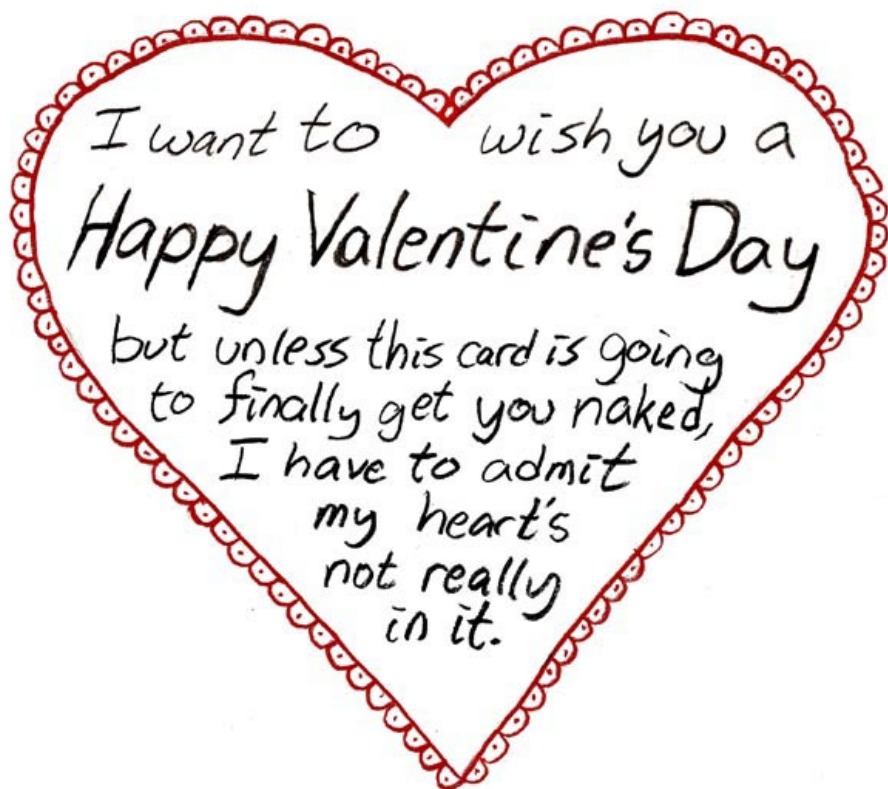 I want to wish you a
Happy Valentine's Day
but unless this card is going
to finally get you naked,
I have to admit
my heart's
not really
in it.